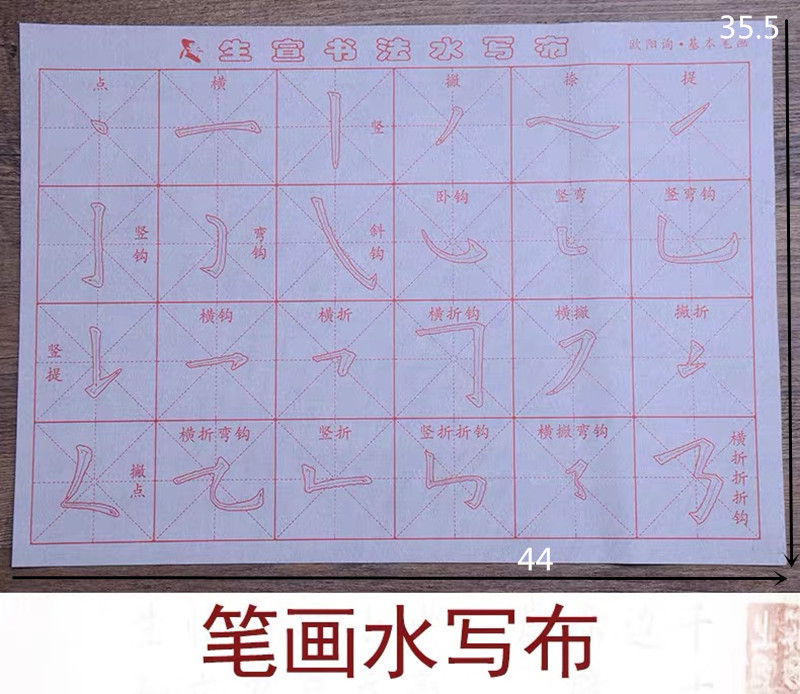 35.5
生宣书法水写布
欧阳询·基本笔画
点 横 竖 撇 捺 提
竖钩 弯钩 斜钩 卧钩 竖弯 竖弯钩
竖提 横钩 横折 横折钩 横撇 撇折
撇点 横折弯钩 竖折 竖折折钩 横撇弯钩 横折折折钩
44
笔画水写布